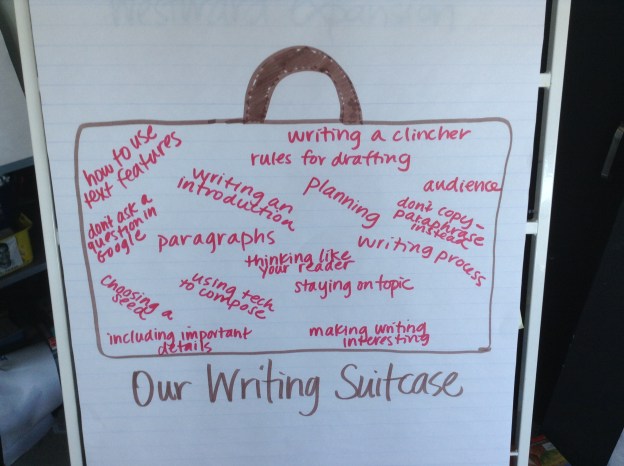 Westward Expansion
how to use
text features
writing a clincher
rules for drafting
writing an
introduction
planning
audience
don't ask a
question in
Google
paragraphs
don't copy-
paraphrase
instead
writing process
thinking like
your reader
choosing a
seed
using tech
to compose
staying on topic
including important
details
making writing
interesting
Our Writing Suitcase